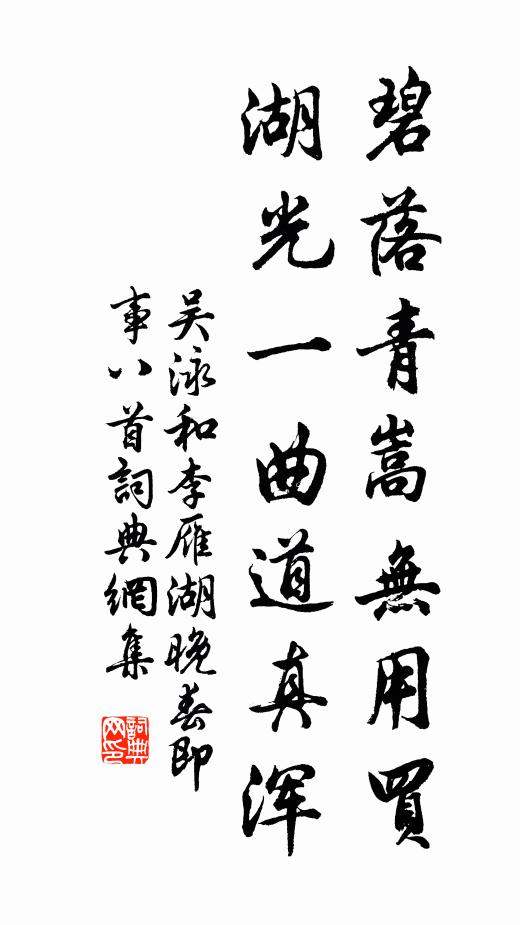 碧落青嵩無用買
湖光一曲道真浑
吴泳和李雁湖晚春即
事八首詞典網集
詞典
网印